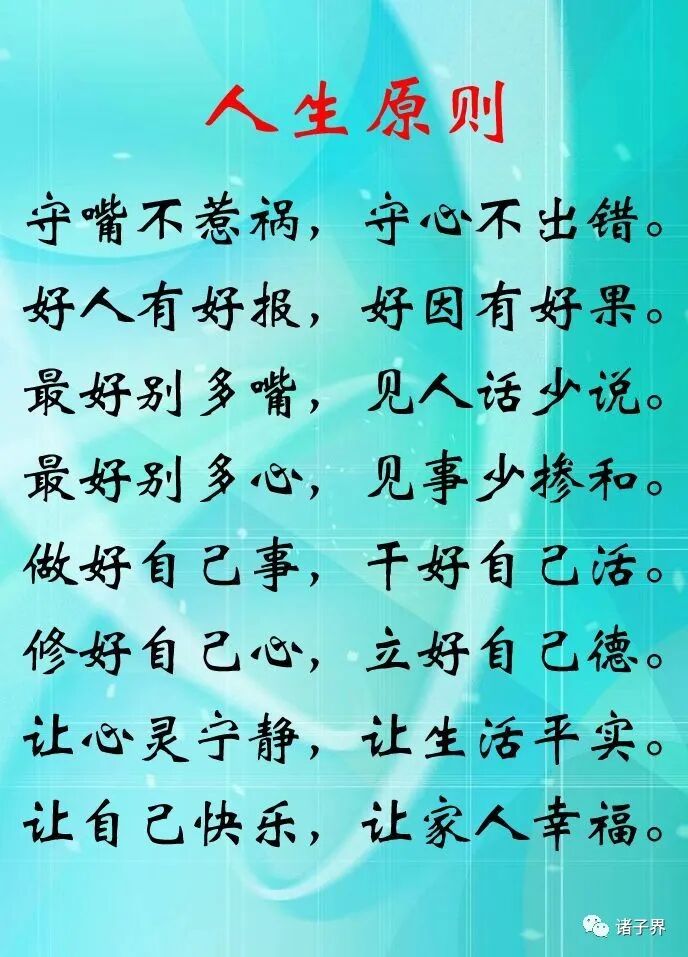 人生原则
守嘴不惹祸，守心不出错。
好人有好报，好因有好果。
最好别多嘴，见人话少说。
最好别多心，见事少掺和。
做好自己事，干好自己活。
修好自己心，立好自己德。
让心灵宁静，让生活平实。
让自己快乐，让家人幸福。
诸子界